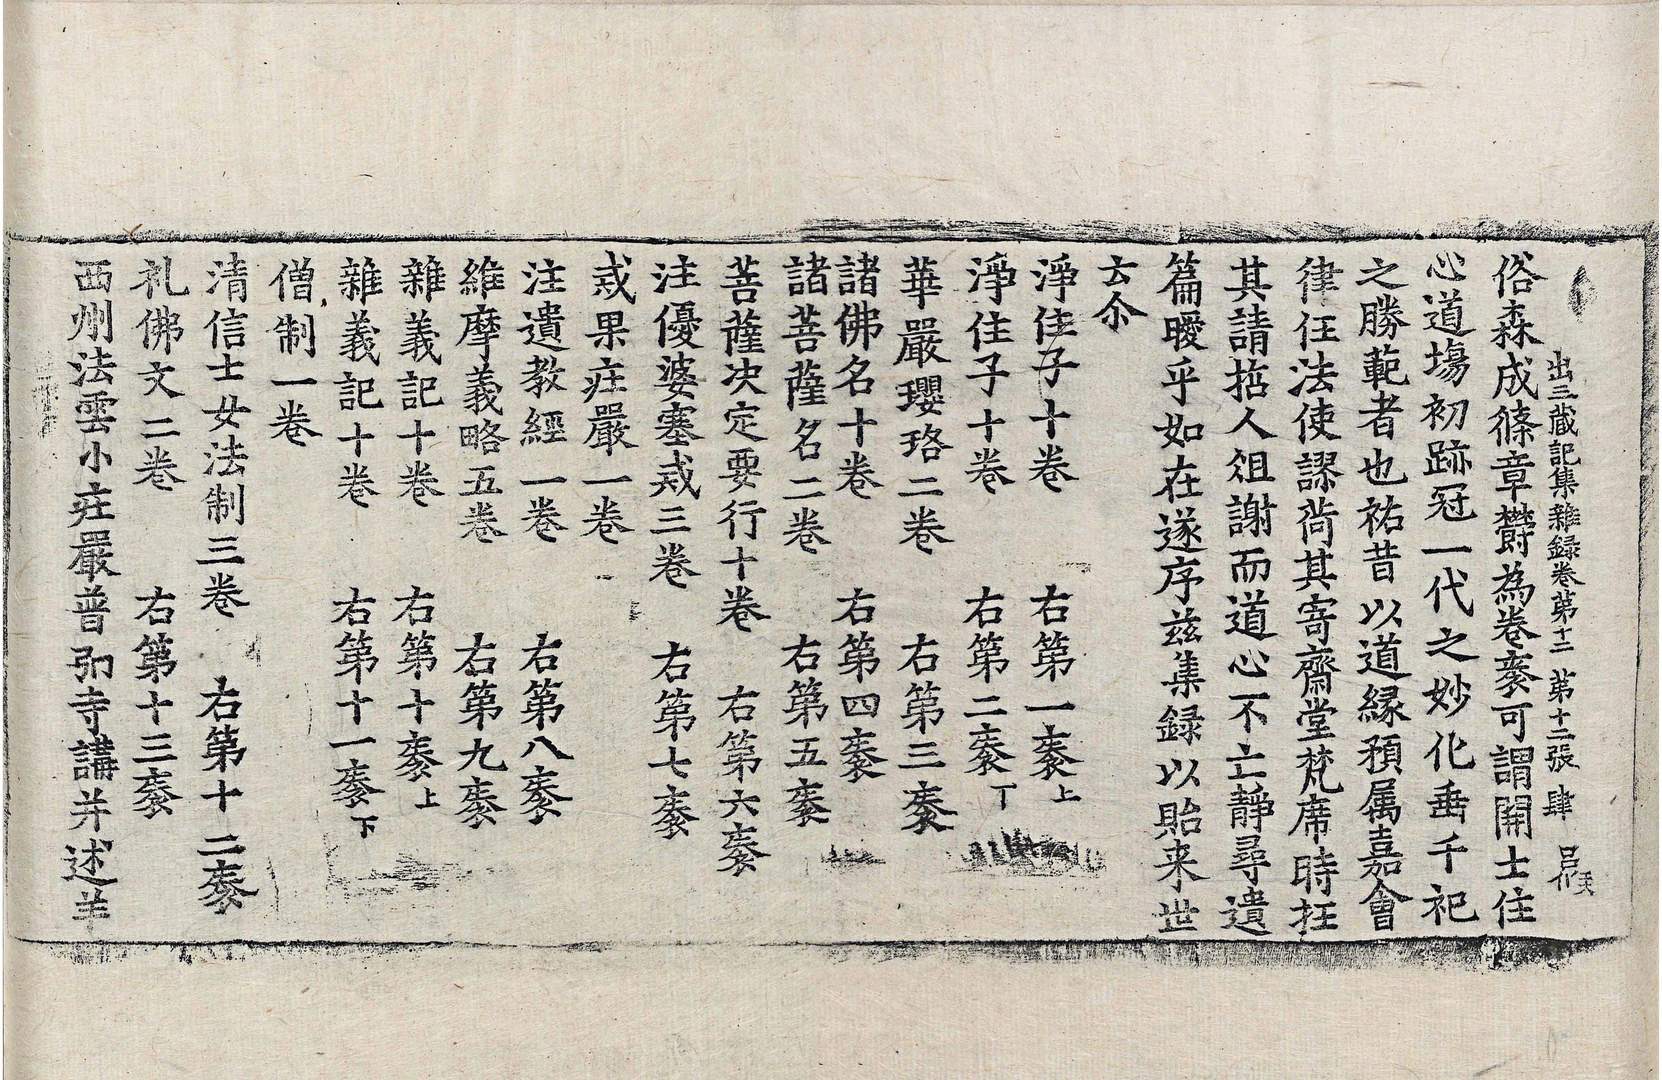 出三藏記集雜録卷第十二 第十二張 肆
俗森成篠章欝為卷袠可謂開士住
心道塲初跡冠一代之妙化垂千祀
之勝範者也祐昔以道縁預属嘉會
律任法使謬尚其寄齋堂梵席時抂
其請捨人徂謝而道心不亡靜尋遺
篇曖乎如在遂序兹集録以貽来世
云尒
淨住子十卷 右第一袠上
淨住子十卷 右第二袠丁
華嚴瓔珞二卷 右第三袠
諸佛名十卷 右第四袠
諸菩薩名二卷 右第五袠
菩薩决定要行十卷 右第六袠
注優婆塞戒三卷 右第七袠
戒果庄嚴一卷
注遺教經一卷 右第八袠
維摩義略五卷 右第九袠
雜義記十卷 右第十袠上
雜義記十卷 右第十一袠下
僧制一卷
清信士女法制三卷 右第十二袠
礼佛文二卷 右第十三袠
西州法雲小庄嚴普弘寺講并述羊